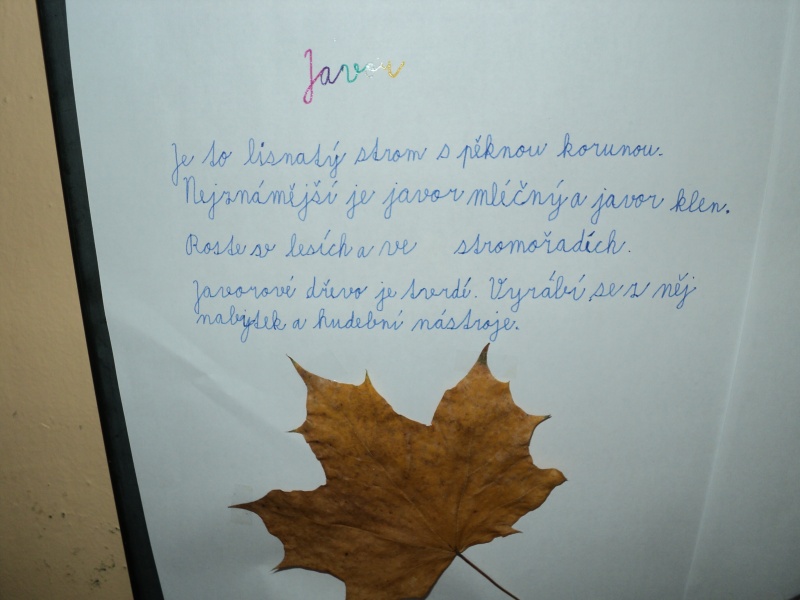 Javor
Je to lisnatý strom s pěknou korunou.
Nejznámější je javor mléčný a javor klen.
Roste v lesích a ve stromořadích.
Javorové dřevo je tvrdí. Vyrábí se z něj
nabytek a hudební nástroje.